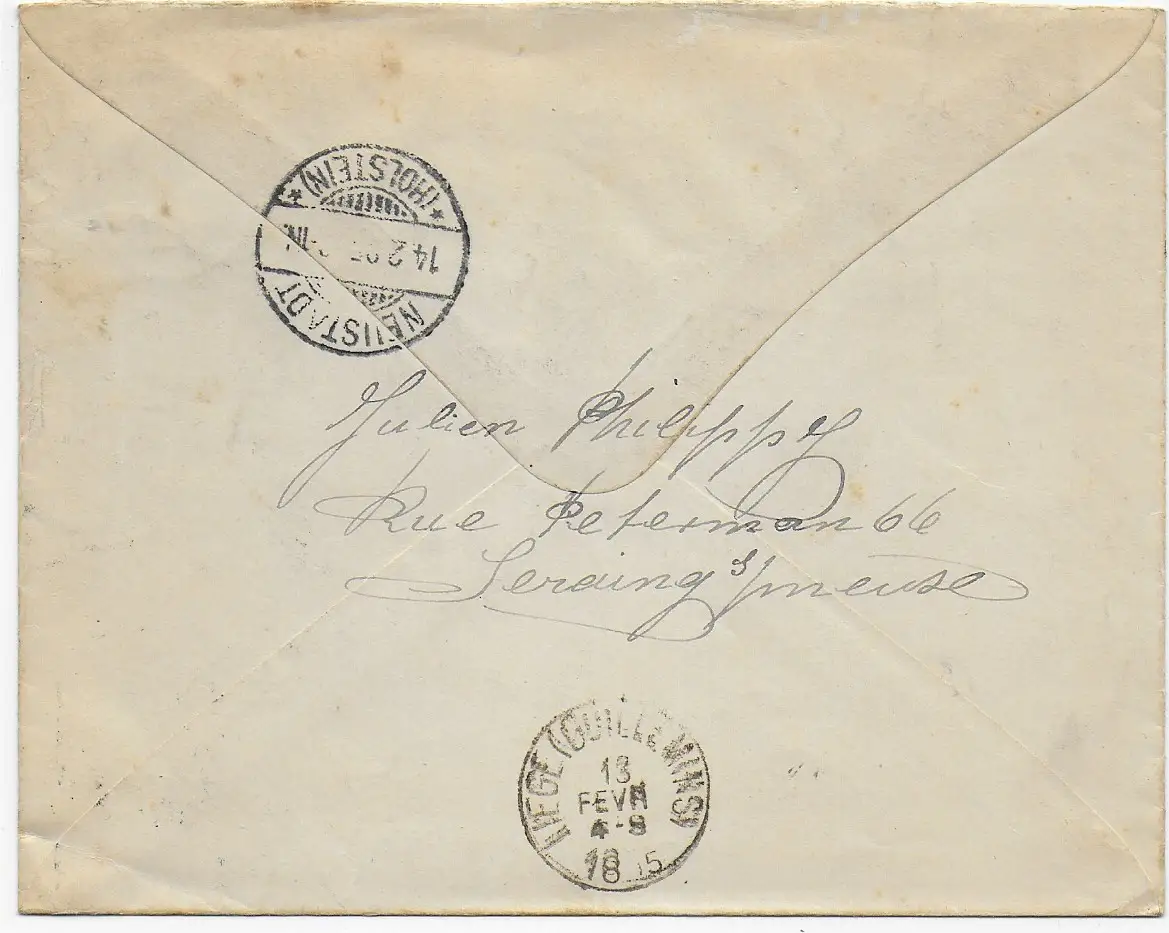 NEUSTADT
14.2.95
*(HOLSTEIN)*
Julien Philippy
Rue Peterman 66
Seraing s/meuse
LIEGE (GUILLEMINS)
13
FEVR
4-8
18 5